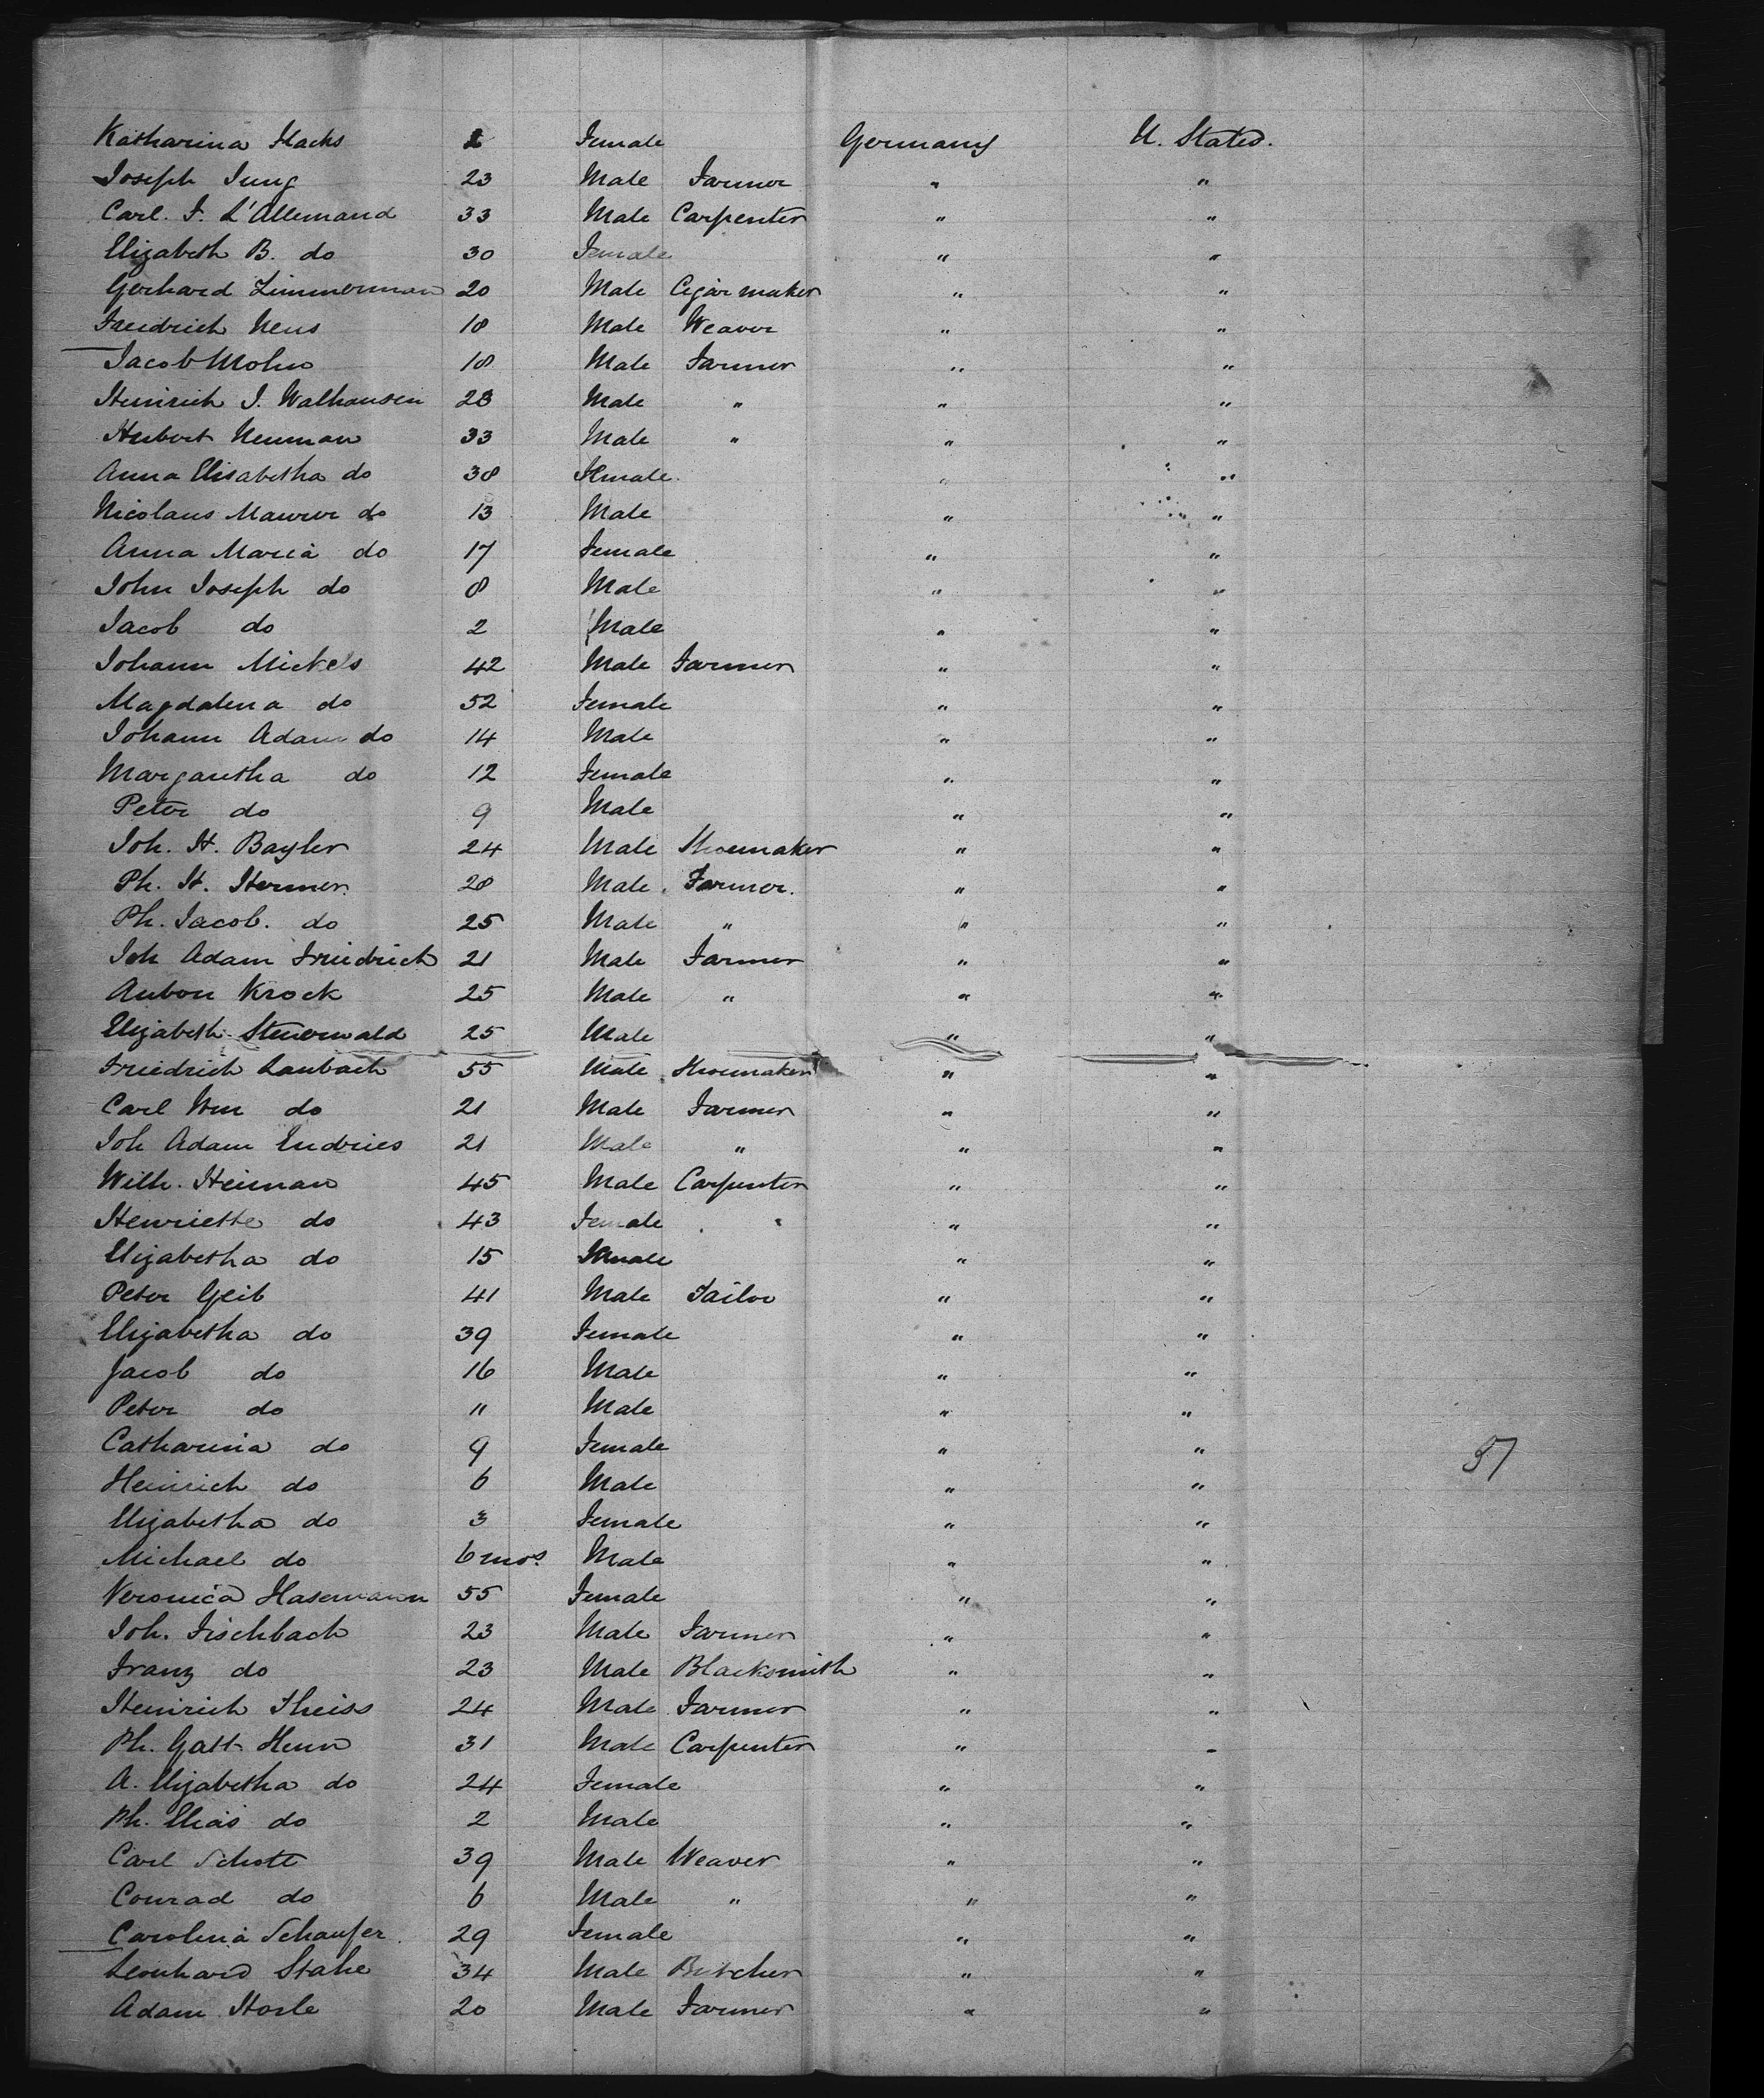 Katharina Hacks 2 Female Germany U. States.
Joseph Jung 23 Male Farmer " "
Carl. F. L'Allemand 33 Male Carpenter " "
Elizabeth B. do 30 Female " "
Gerhard Zimmerman 20 Male Cigar maker " "
Friedrich Neus 18 Male Weaver " "
Jacob Mohn 18 Male Farmer " "
Heinrich J. Walhausen 28 Male " " "
Hubert Neuman 33 Male " " "
Anna Elisabetha do 38 Female " "
Nicolaus Maurer do 13 Male " "
Anna Maria do 17 Female " "
John Joseph do 8 Male " "
Jacob do 2 Male " "
Johann Mickels 42 Male Farmer " "
Magdalena do 52 Female " "
Johann Adam do 14 Male " "
Margaretha do 12 Female " "
Peter do 9 Male " "
Joh. H. Bayler 24 Male Shoemaker " "
Ph. H. Hermer 28 Male Farmer. " "
Ph. Jacob. do 25 Male " " "
Joh Adam Friedrich 21 Male Farmer " "
Anton Krock 25 Male " " "
Elizabeth Steuerwald 25 Male " "
Friedrich Laubach 55 Male Shoemaker " "
Carl Wm do 21 Male Farmer " "
Joh Adam Endries 21 Male " " "
Wilh. Heiman 45 Male Carpenter " "
Henriette do 43 Female " "
Elizabetha do 15 Female " "
Peter Geib 41 Male Tailor " "
Elizabetha do 39 Female " "
Jacob do 16 Male " "
Peter do 11 Male " "
Catharina do 9 Female " "
Heinrich do 6 Male " "
57
Elizabetha do 3 Female " "
Michael do 6 mos. Male " "
Veronica Hasemann 55 Female " "
Joh. Fischbach 23 Male Farmer " "
Franz do 23 Male Blacksmith " "
Heinrich Theiss 24 Male Farmer " "
Ph. Gatt Henn 31 Male Carpenter " "
A. Elizabetha do 24 Female " "
Ph. Elias do 2 Male " "
Carl Schott 39 Male Weaver " "
Conrad do 6 Male " " "
Carolina Schaufer 29 Female " "
Leonhard Stahe 34 Male Butcher " "
Adam Horle 20 Male Farmer " "